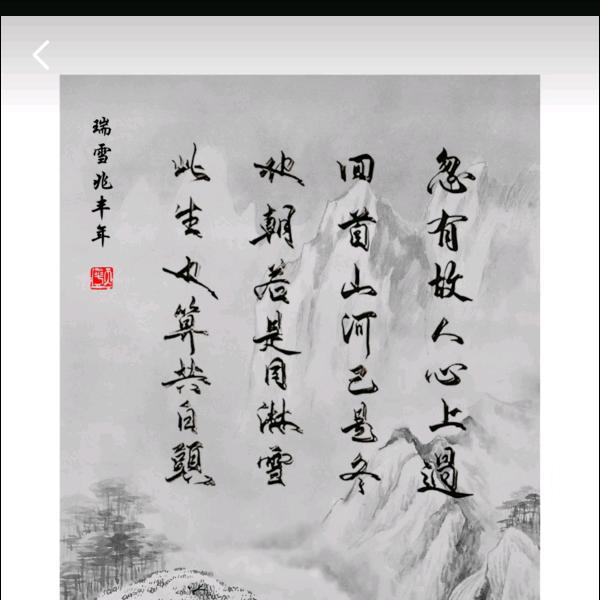 忽有故人心上過
回首山河已是冬
他朝若是同淋雪
此生也算共白頭
瑞雪兆丰年